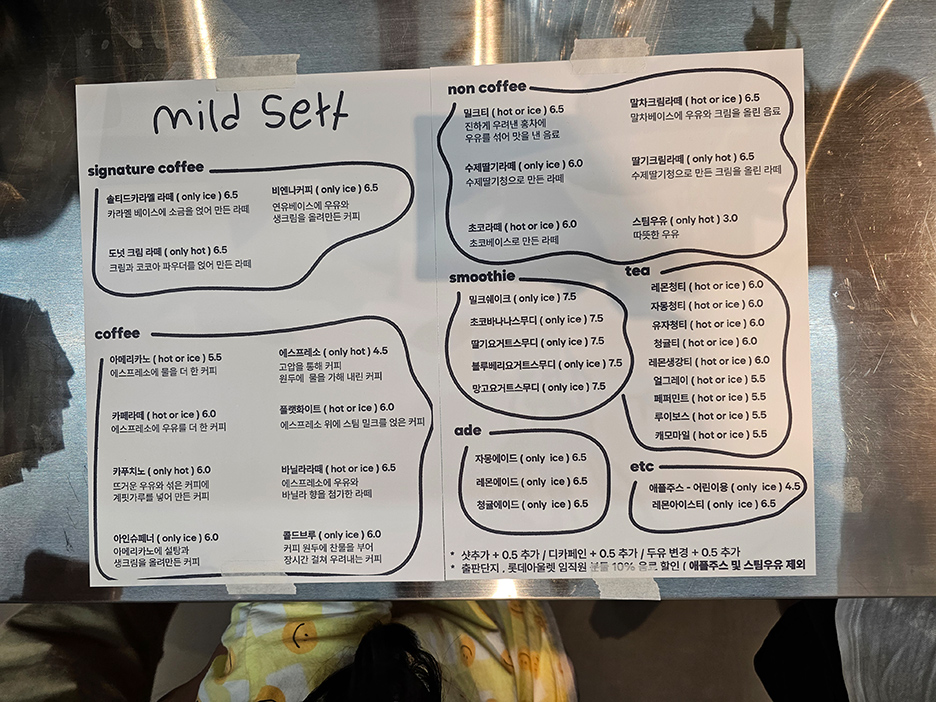 mild Sett
signature coffee
솔티드카라멜 라떼 ( only ice ) 6.5
카라멜 베이스에 소금을 얹어 만든 라떼
비엔나커피 ( only ice ) 6.5
연유베이스에 우유와
생크림을 올려만든 커피
도넛 크림 라떼 ( only hot ) 6.5
크림과 코코아 파우더를 얹어 만든 라떼
coffee
아메리카노 ( hot or ice ) 5.5
에스프레소에 물을 더 한 커피
에스프레소 ( only hot ) 4.5
고압을 통해 커피
원두에 물을 가해 내린 커피
카페라떼 ( hot or ice ) 6.0
에스프레소에 우유를 더 한 커피
플랫화이트 ( hot or ice ) 6.0
에스프레소 위에 스팀 밀크를 얹은 커피
카푸치노 ( only hot ) 6.0
뜨거운 우유와 섞은 커피에
계핏가루를 넣어 만든 커피
바닐라라떼 ( hot or ice ) 6.5
에스프레소에 우유와
바닐라 향을 첨가한 라떼
아인슈페너 ( only ice ) 6.0
아메리카노에 설탕과
생크림을 올려만든 커피
콜드브루 ( only ice ) 6.0
커피 원두에 찬물을 부어
장시간 걸쳐 우려내는 커피
non coffee
밀크티 ( hot or ice ) 6.5
진하게 우려낸 홍차에
우유를 섞어 맛을 낸 음료
말차크림라떼 ( hot or ice ) 6.5
말차베이스에 우유와 크림을 올린 음료
수제딸기라떼 ( only ice ) 6.0
수제딸기청으로 만든 라떼
딸기크림라떼 ( only hot ) 6.5
수제딸기청으로 만든 크림을 올린 라떼
초코라떼 ( hot or ice ) 6.0
초코베이스로 만든 라떼
스팀우유 ( only hot ) 3.0
따뜻한 우유
smoothie
밀크쉐이크 ( only ice ) 7.5
초코바나나스무디 ( only ice ) 7.5
딸기요거트스무디 ( only ice ) 7.5
블루베리요거트스무디 ( only ice ) 7.5
망고요거트스무디 ( only ice ) 7.5
tea
레몬청티 ( hot or ice ) 6.0
자몽청티 ( hot or ice ) 6.0
유자청티 ( hot or ice ) 6.0
청귤티 ( hot or ice ) 6.0
레몬생강티 ( hot or ice ) 6.0
얼그레이 ( hot or ice ) 5.5
페퍼민트 ( hot or ice ) 5.5
루이보스 ( hot or ice ) 5.5
캐모마일 ( hot or ice ) 5.5
ade
자몽에이드 ( only ice ) 6.5
레몬에이드 ( only ice ) 6.5
청귤에이드 ( only ice ) 6.5
etc
애플주스 - 어린이용 ( only ice ) 4.5
레몬아이스티 ( only ice ) 6.5
* 샷추가 + 0.5 추가 / 디카페인 + 0.5 추가 / 두유 변경 + 0.5 추가
* 출판단지 , 롯데아울렛 임직원 분들 10% 음료 할인 ( 애플주스 및 스팀우유 제외